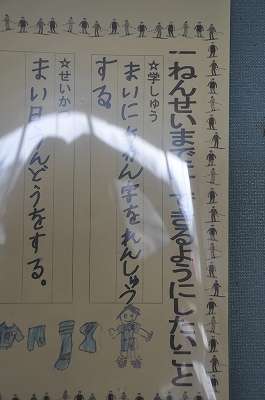 一ねんせいまでにできるようにしたいこと
☆学しゅう
まいにちかん字をれんしゅう
する。
☆せいか
まい日うんどうをする。